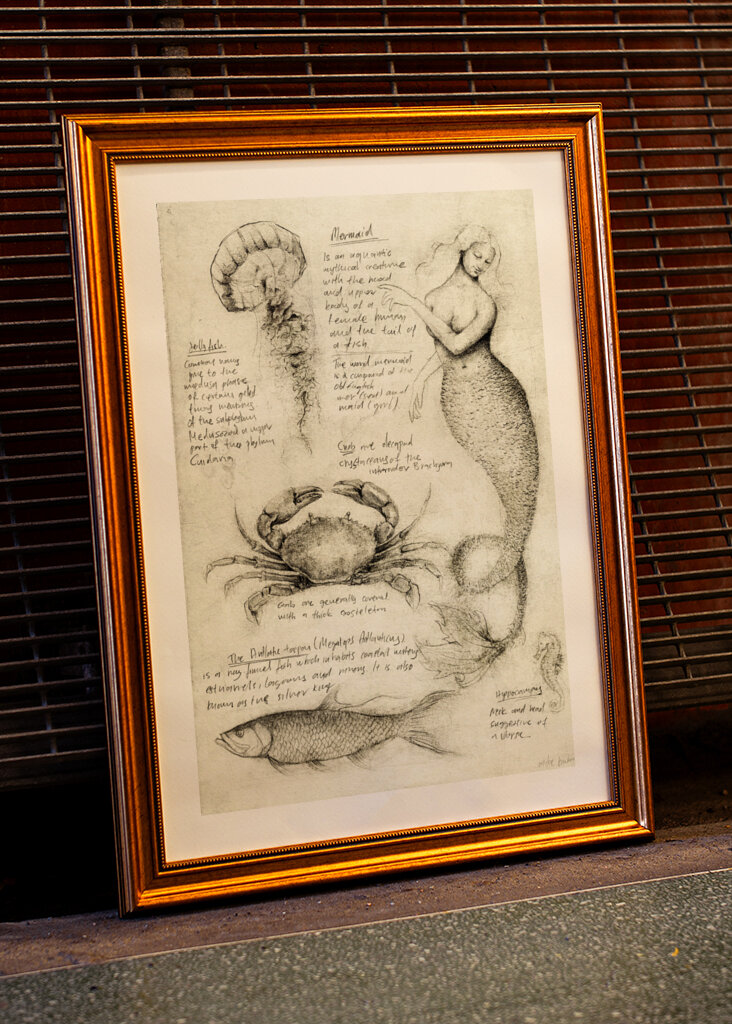 Mermaid
Is an aquatic
mythical creature
with the head
and upper
body of a
female human
and the tail of
a fish
The word mermaid
is a compound of the
Old English
mer (sea) and
maid (girl)
Jelly fish.
Common name
give to the
medusa phase
of certain
of the
Medusozoa
part of the phylum
Cnidaria
Crab are decapod
crustaceans of the
infraorder Brachyura
Crab are generally covered
with a thick exoskeleton
The Atlantic tarpon (Megalops Atlanticus)
is a ray finned fish which inhabits coastal waters
estuaries, lagoons and rivers. It is also
known as the silver king
Hippocampus
Neck and head
suggestive of
a horse...